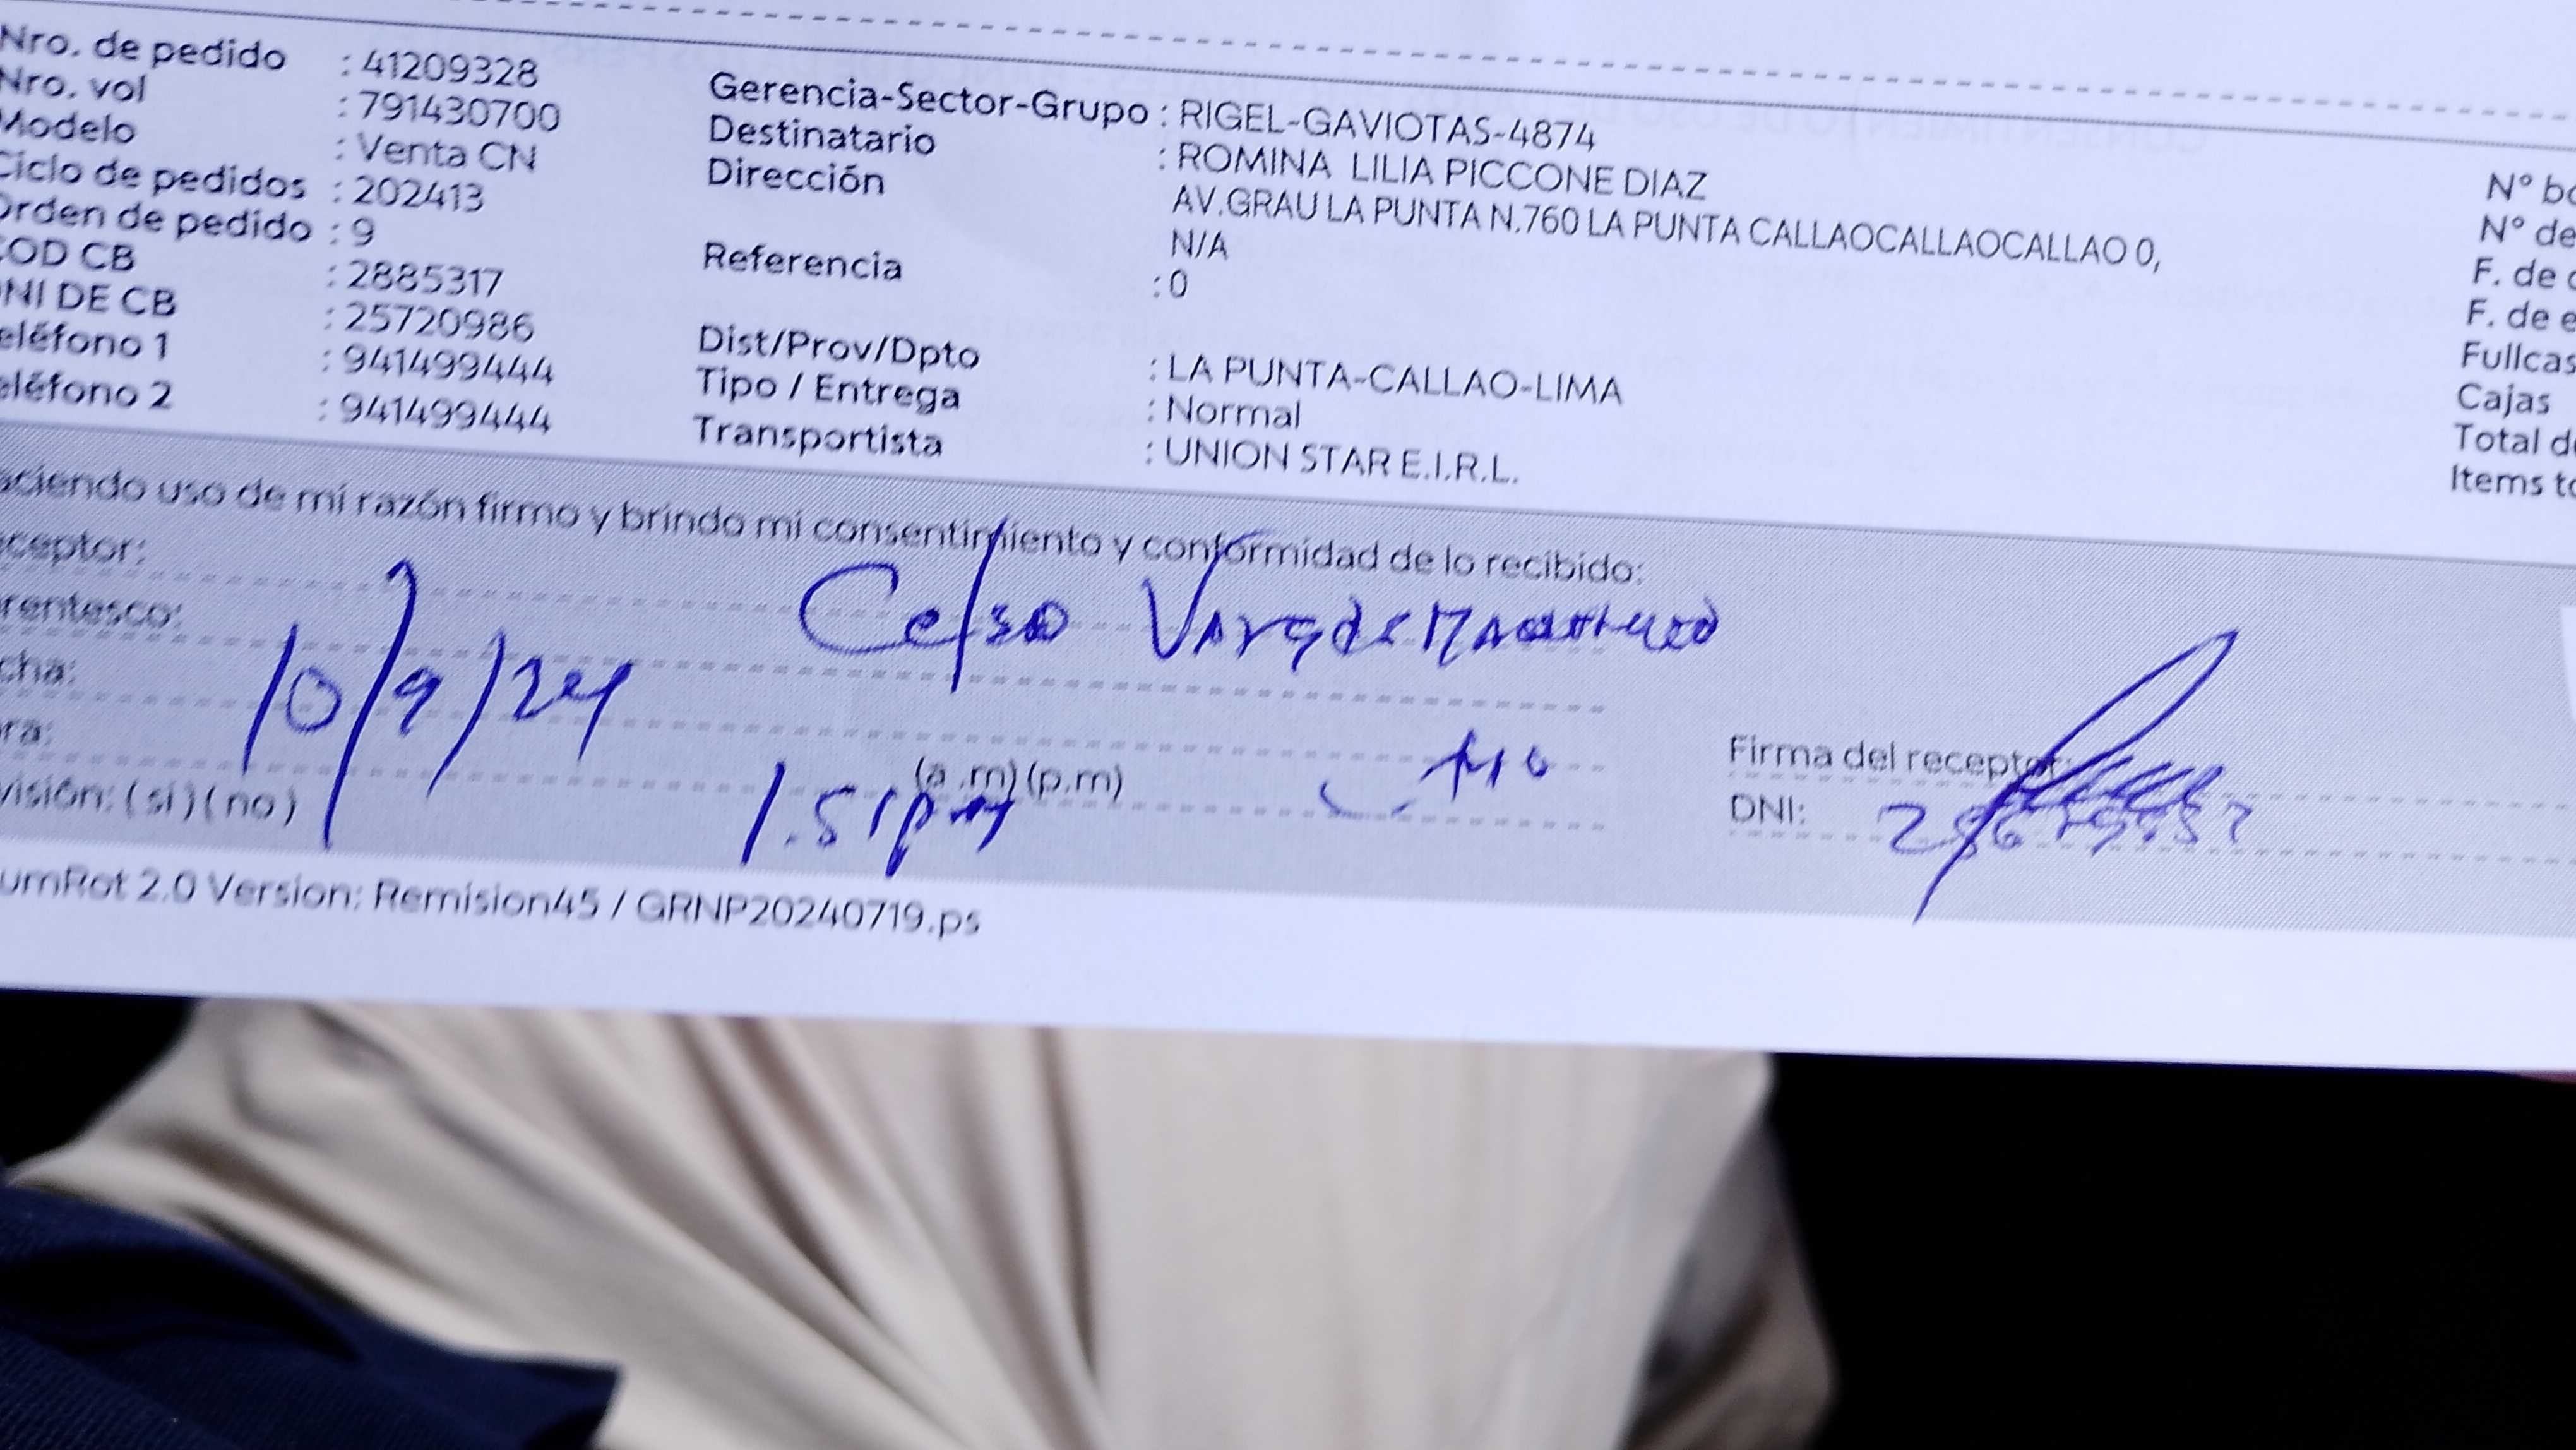 Nro. de pedido : 41209328
Nro. vol : 791430700
Modelo : Venta CN
Ciclo de pedidos : 202413
Orden de pedido : 9
COD CB : 2885317
DNI DE CB : 25720986
eléfono 1 : 941499444
eléfono 2 : 941499444
Gerencia-Sector-Grupo : RIGEL-GAVIOTAS-4874
Destinatario : ROMINA LILIA PICCONE DIAZ
Dirección AV.GRAU LA PUNTA N.760 LA PUNTA CALLAOCALLAOCALLAO 0,
N/A
Referencia : 0
Dist/Prov/Dpto : LA PUNTA-CALLAO-LIMA
Tipo / Entrega : Normal
Transportista : UNION STAR E.I.R.L.
N° bo
N° de
F. de
F. de e
Fullcas
Cajas
Total d
Items to
aciendo uso de mi razón firmo y brindo mi consentimiento y conformidad de lo recibido:
ceptor: Celso Vargas
rentesco:
cha: 10/9/24
ra: 1.51pm (a.m)(p.m)
visión: (si)(no)
Firma del receptor:
DNI:
umRot 2.0 Version: Remision45 / GRNP20240719.ps